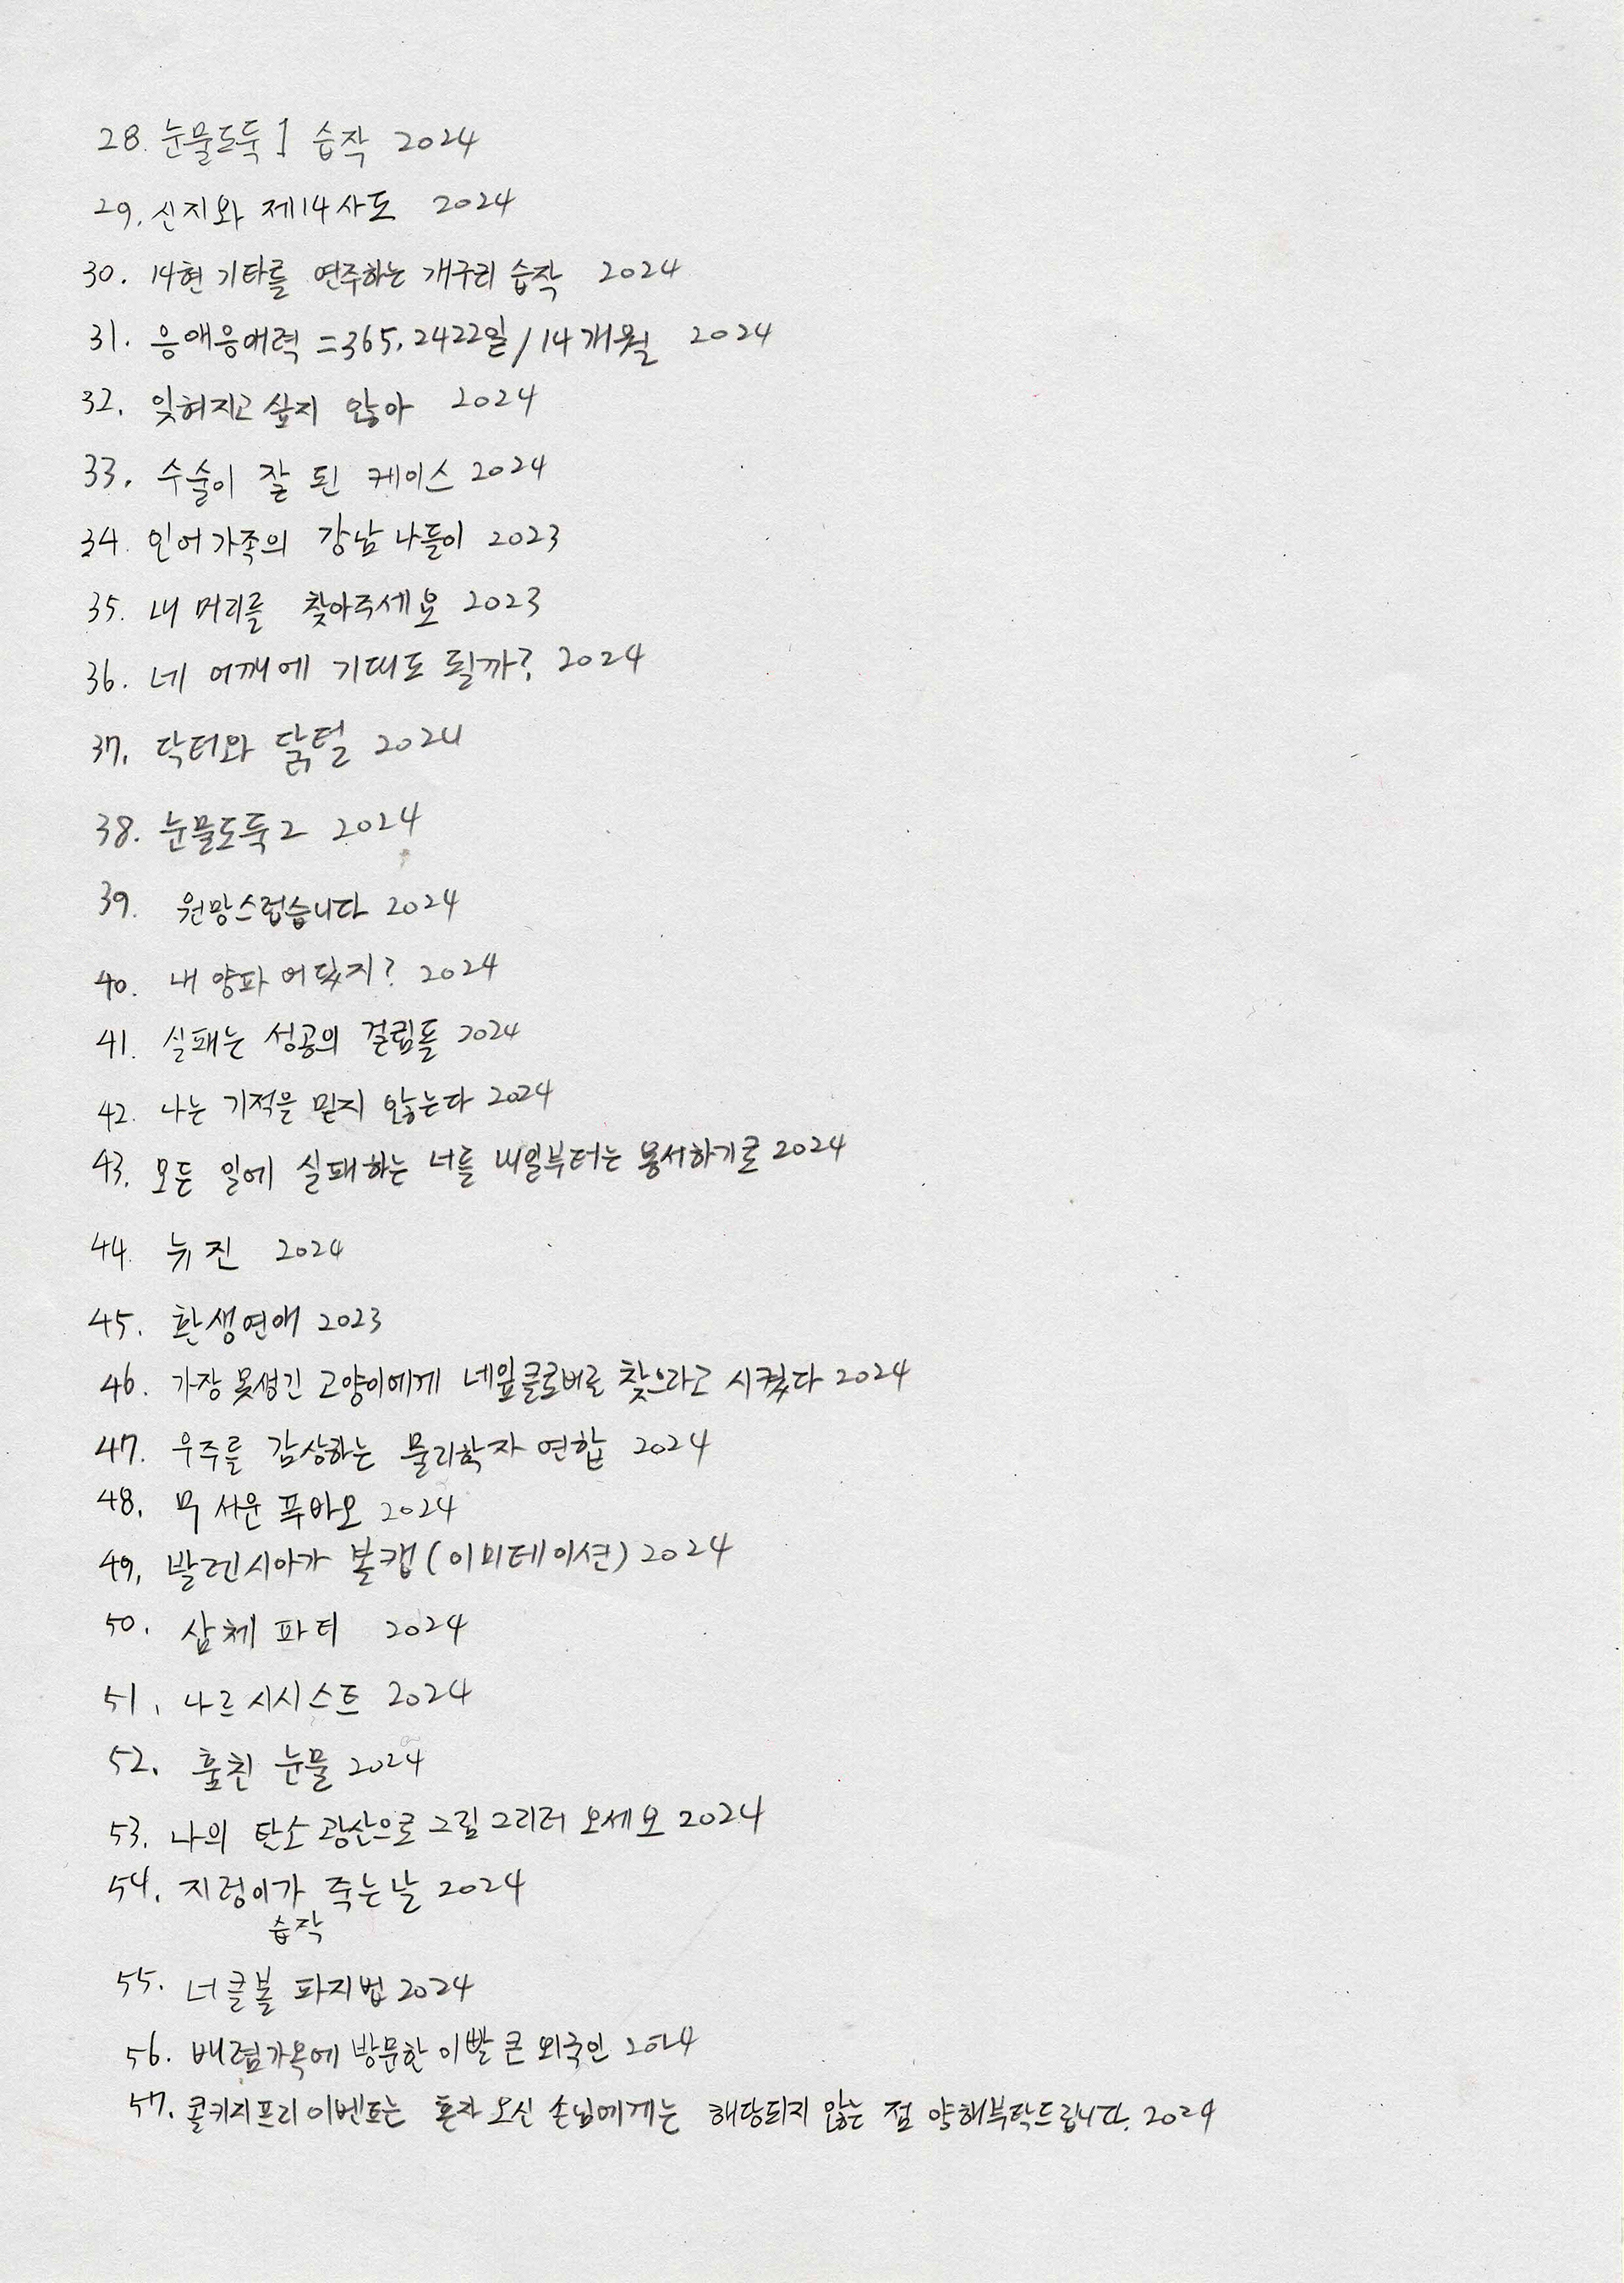 28. 눈물도둑 1 습작 2024
29. 신지와 제14사도 2024
30. 14현 기타를 연주하는 개구리 습작 2024
31. 응애응애력 =365.2422일/14개월 2024
32. 잊혀지고 싶지 않아 2024
33. 수술이 잘 된 케이스 2024
34. 인어가족의 강남 나들이 2023
35. 내 머리를 찾아주세요 2023
36. 네 어깨에 기대도 될까? 2024
37. 닥터와 닭털 2024
38. 눈물도둑 2 2024
39. 원망스럽습니다 2024
40. 내 양파 어딨지? 2024
41. 실패는 성공의 걸림돌 2024
42. 나는 기적을 믿지 않는다 2024
43. 모든 일에 실패하는 너를 내일부터는 용서하기로 2024
44. 뉴진 2024
45. 환생연애 2023
46. 가장 못생긴 고양이에게 네잎클로버를 찾으라고 시켰다 2024
47. 우주를 감상하는 물리학자 연합 2024
48. 무서운 푸바오 2024
49. 발렌시아가 볼캡 (이미테이션) 2024
50. 삼체 파티 2024
51. 나르시시스트 2024
52. 훔친 눈물 2024
53. 나의 탄소 광산으로 그림 그리러 오세요 2024
54. 지렁이가 죽는 날 2024
습작
55. 너클볼 파지법 2024
56. 배렴가옥에 방문한 이빨 큰 외국인 2024
57. 콜키지프리 이벤트는 혼자 오신 손님에게는 해당되지 않는 점 양해부탁드립니다. 2024